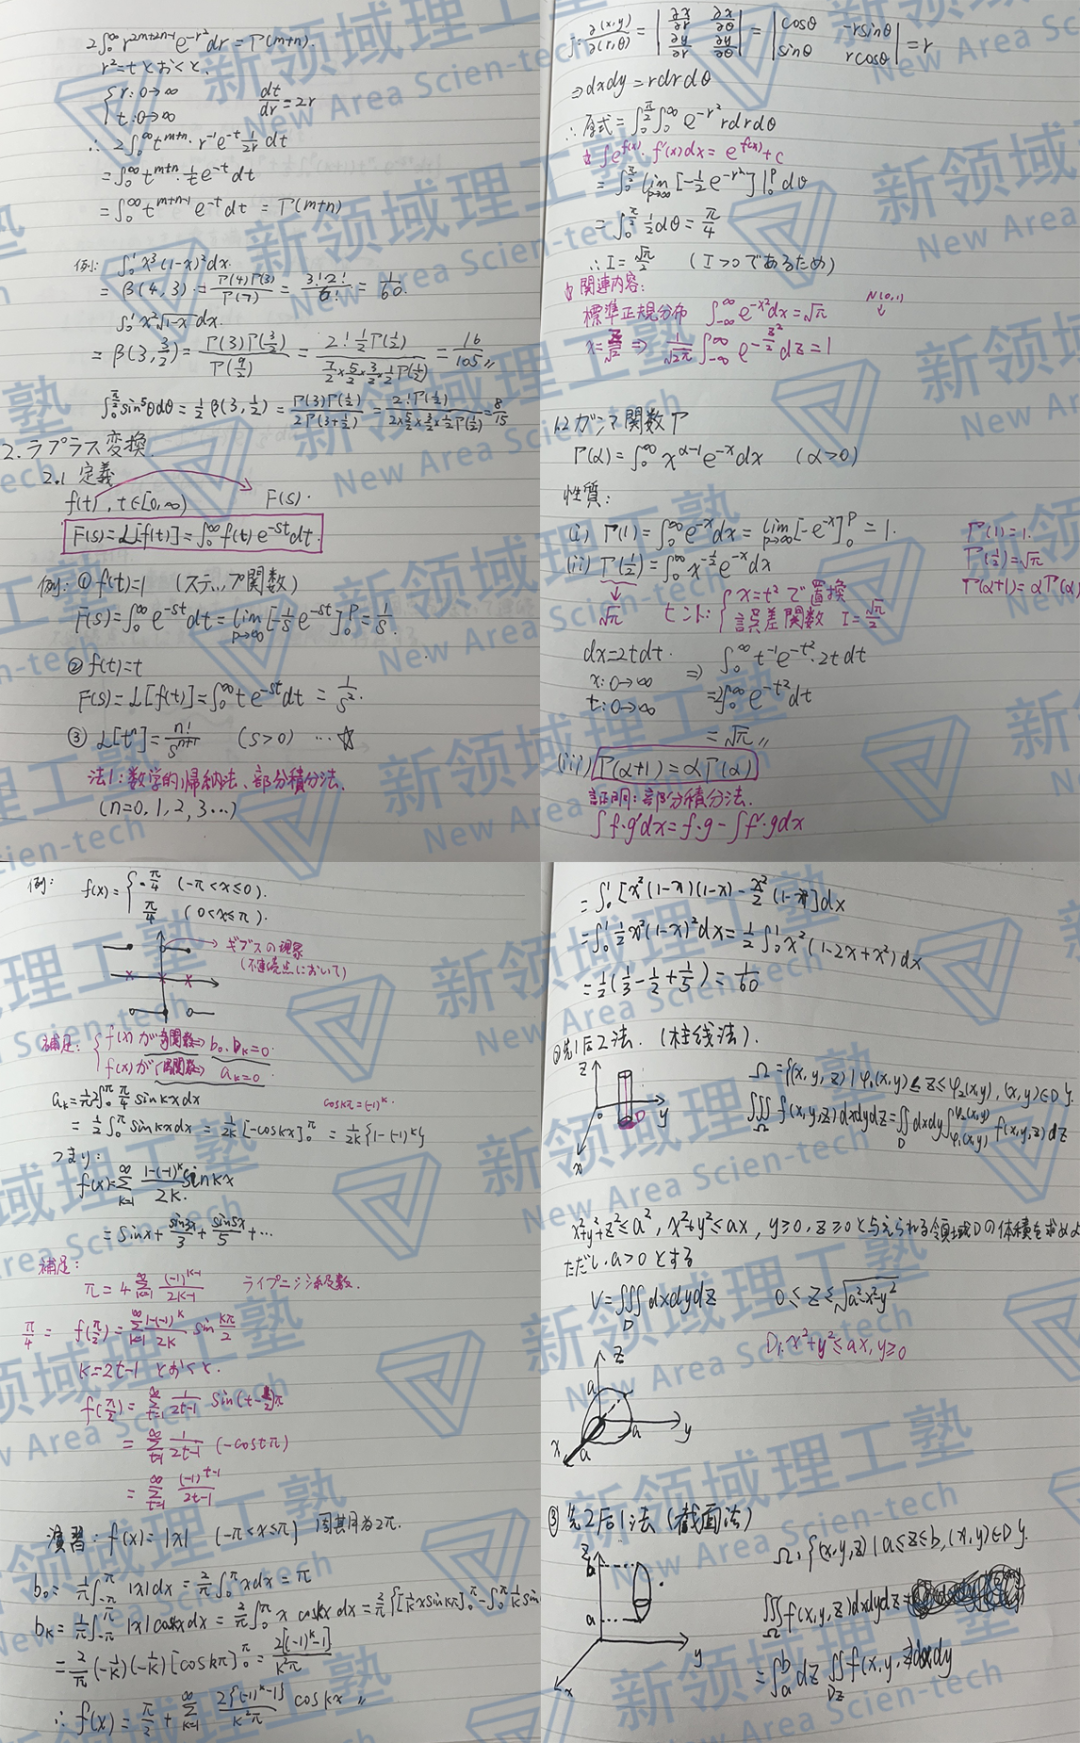 2∫₀^∞ r^{2m+2n-1} e^{-r²} dr = Γ(m+n).
r² = t とおくと、
{ r: 0→∞
t: 0→∞
dt/dr = 2r
∴ 2∫₀^∞ t^{m+n} · r^{-1} e^{-t} 1/2r dt
= ∫₀^∞ t^{m+n} · 1/t e^{-t} dt
= ∫₀^∞ t^{m+n-1} e^{-t} dt = Γ(m+n)
例: ∫₀¹ x³(1-x)² dx.
= β(4,3) = Γ(4)Γ(3)/Γ(7) = 3!2!/6! = 1/60.
∫₀¹ x²√(1-x) dx.
= β(3, 3/2) = Γ(3)Γ(3/2)/Γ(9/2) = 2! ½Γ(½) / (7/2 × 5/2 × 3/2 × ½Γ(½)) = 16/105 〃
∫₀^{π/2} sin⁵θdθ = ½ β(3, ½) = Γ(3)Γ(½)/2Γ(3+½) = 2!Γ(½)/(2×5/2×3/2×½Γ(½)) = 8/15
2. ラプラス変換.
2.1 定義
f(t), t∈[0,∞) F(s).
F(s) = L[f(t)] = ∫₀^∞ f(t) e^{-st} dt.
例: ① f(t)=1 (ステップ関数)
F(s) = ∫₀^∞ e^{-st} dt = lim_{p→∞} [-1/s e^{-st}]₀^p = 1/s.
② f(t)=t
F(s) = L[f(t)] = ∫₀^∞ t e^{-st} dt = 1/s².
③ L[tⁿ] = n!/s^{n+1} (s>0) …☆
法1: 数学的帰納法、部分積分法.
(n=0,1,2,3…)
J: ∂(x,y)/∂(r,θ) = | ∂x/∂r ∂x/∂θ ; ∂y/∂r ∂y/∂θ | = | cosθ -rsinθ ; sinθ rcosθ | = r
⇒ dxdy = rdrdθ
∴ 原式 = ∫₀^{π/2} ∫₀^∞ e^{-r²} rdrdθ
∫e^{f(x)} · f'(x)dx = e^{f(x)} + c
= ∫₀^{π/2} lim_{p→∞} [-½e^{-r²}]|₀^p dθ
= ∫₀^{π/2} ½dθ = π/4
∴ I = √π/2 (I>0であるため)
関連内容:
標準正規分布 ∫_{-∞}^∞ e^{-x²}dx = √π N(0,1)
⇒ 1/√2π ∫_{-∞}^∞ e^{-z²/2} dz = 1
1.2 ガンマ関数 Γ
Γ(α) = ∫₀^∞ x^{α-1} e^{-x} dx (α>0)
性質:
(i) Γ(1) = ∫₀^∞ e^{-x} dx = lim_{p→∞} [-e^{-x}]₀^p = 1. Γ(1)=1.
(ii) Γ(½) = ∫₀^∞ x^{-½} e^{-x} dx Γ(½)=√π
Γ(α+1)=αΓ(α)
√π ヒント: { x=t² で置換
誤差関数 I=√π/2
dx=2tdt. ⇒ ∫₀^∞ t^{-1} e^{-t²} · 2tdt
x: 0→∞
t: 0→∞ =2∫₀^∞ e^{-t²} dt
= √π 〃
(iii) Γ(α+1) = αΓ(α)
証明: 部分積分法.
∫f·g'dx = f·g - ∫f'·gdx
例: f(x) = { -π/4 (-π<x≤0).
π/4 (0<x≤π).
ギブスの現象
(不連続点において)
補足: { f(x)が奇関数⇒ b₀, b_K=0.
f(x)が偶関数⇒ a_K=0.
a_K = 1/π 2∫₀^π π/4 sinkxdx coskπ=(-1)^k.
= ½∫₀^π sinkxdx = 1/2k [-coskx]₀^π = 1/2k {1-(-1)^k}
つまり:
f(x) = Σ_{k=1}^∞ (1-(-1)^k)/2k · sinkx
= sinx + sin3x/3 + sin5x/5 + …
補足:
π = 4 Σ (-1)^{k-1}/(2k-1) ライプニッツ級数.
π/4 = f(π/2) = Σ_{k=1}^∞ (1-(-1)^k)/2k · sin kπ/2
k=2t-1 とおくと.
f(π/2) = Σ_{t=1}^∞ 1/(2t-1) sin(t-½)π
= Σ_{t=1}^∞ 1/(2t-1) (-costπ)
= Σ_{t=1}^∞ (-1)^{t-1}/(2t-1)
演習: f(x)=|x| (-π<x≤π) 周其月为2π.
b₀ = 1/π ∫_{-π}^π |x|dx = 2/π ∫₀^π xdx = π
b_K = 1/π ∫_{-π}^π |x|coskxdx = 2/π ∫₀^π x coskxdx = 2/π {[1/k xsinkx]₀^π - ∫₀^π 1/k sin
= 2/π (-1/k)(-1/k)[coskx]₀^π = 2[(-1)^k-1]/k²π
∴ f(x) = π/2 + Σ_{k=1}^∞ 2{(-1)^k-1}/k²π coskx 〃
= ∫₀¹ [x²(1-x)(1-x) - x²/2 (1-x)²]dx
= ∫₀¹ ½x²(1-x)²dx = ½∫₀¹ x²(1-2x+x²)dx
= ½(⅓-½+⅕) = 1/60
②先1后2法. (柱线法).
Ω={(x,y,z) | φ₁(x,y)≤z≤φ₂(x,y), (x,y)∈D}.
∭_Ω f(x,y,z)dxdydz = ∬_D dxdy ∫_{φ₁(x,y)}^{φ₂(x,y)} f(x,y,z)dz
z
D
o y
x
x²+y²+z²≤a², x²+y²≤ax, y≥0, z≥0 と与えられる領域Dの体積を求めよ
ただし、a>0 とする
V = ∭_D dxdydz 0≤z≤√(a²-x²-y²)
D₁: x²+y²≤ax, y≥0
z
a
a y
x a
③ 先2后1法 (截面法)
Ω: {(x,y,z) | a≤z≤b, (x,y)∈D}.
z
b
∭_Ω f(x,y,z)dxdydz =
a
= ∫_a^b dz ∬_{Dz} f(x,y,z)dxdy
y
x
新领域理工塾
New Area Scien-tech